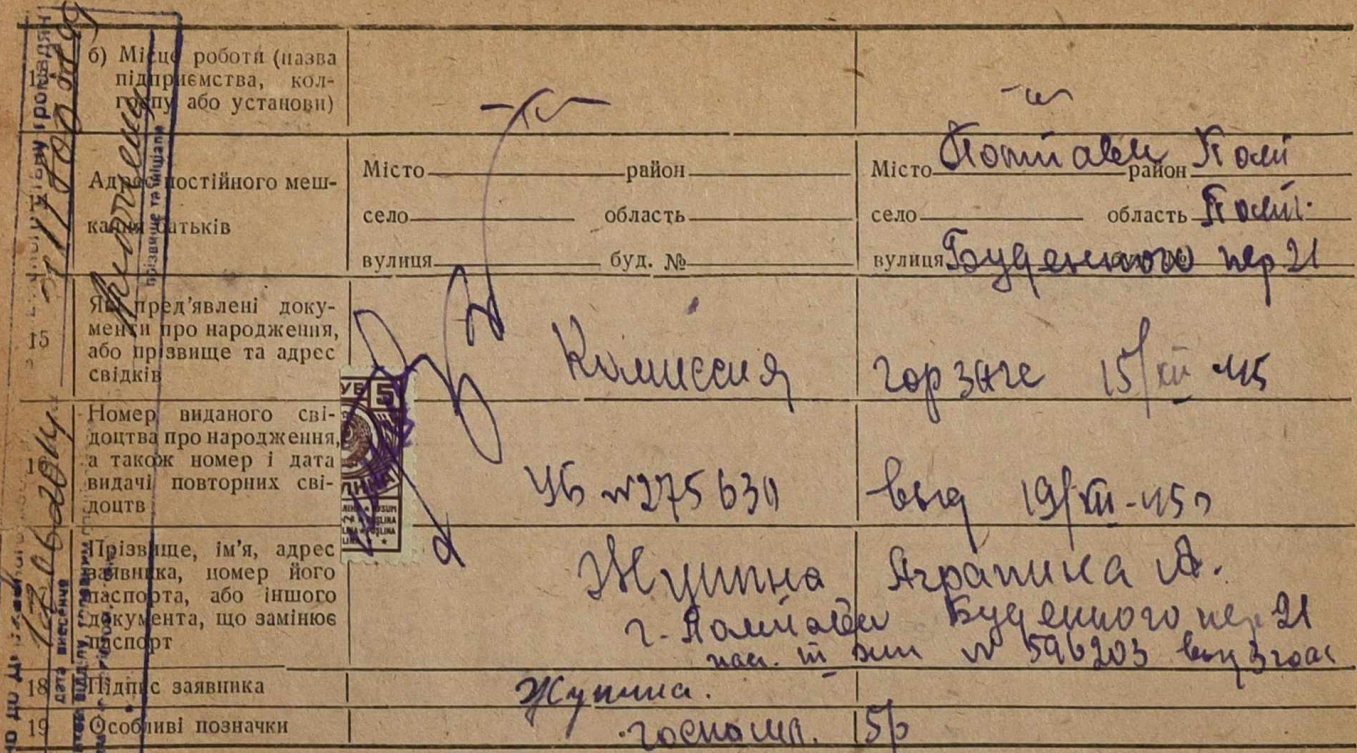 б) Місце роботи (назва
підприємства, кол-
госпу або установи)
Адрес постійного меш-
кання батьків
Місто район
село область
вулиця буд. №
Місто Полтава район Полт
село область Полт.
вулиця Буденного пер 21
15 Які пред'явлені доку-
менти про народження,
або прізвище та адрес
свідків
Комиссия горзагс 15/XII 45
Номер виданого сві-
доцтва про народження,
а також номер і дата
видачі повторних сві-
доцтв
УБ № 275630 выд 19/XII-45г
5
Прізвище, ім'я, адрес
заявника, номер його
паспорта, або іншого
документа, що замінює
паспорт
Жупина А.
г. Полтава Буденного пер 21
№ 596203
18 Підпис заявника
Жупина.
19 Особливі позначки
госпошл. 5р
прізвище та ініціали
дата внесення